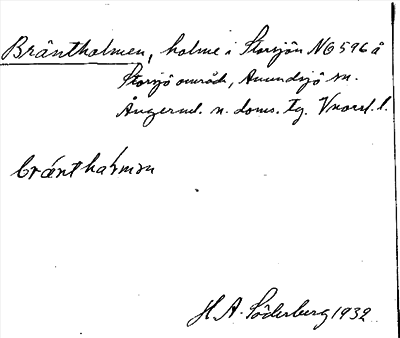 Bräntholmen, holme i Storsjön NO 596 å
Storsjö område, Anundsjö sn.
Ångerml. n. doms. tg. Vnorrl. l.
bränthaḷmən
H. A. Söderberg 1932